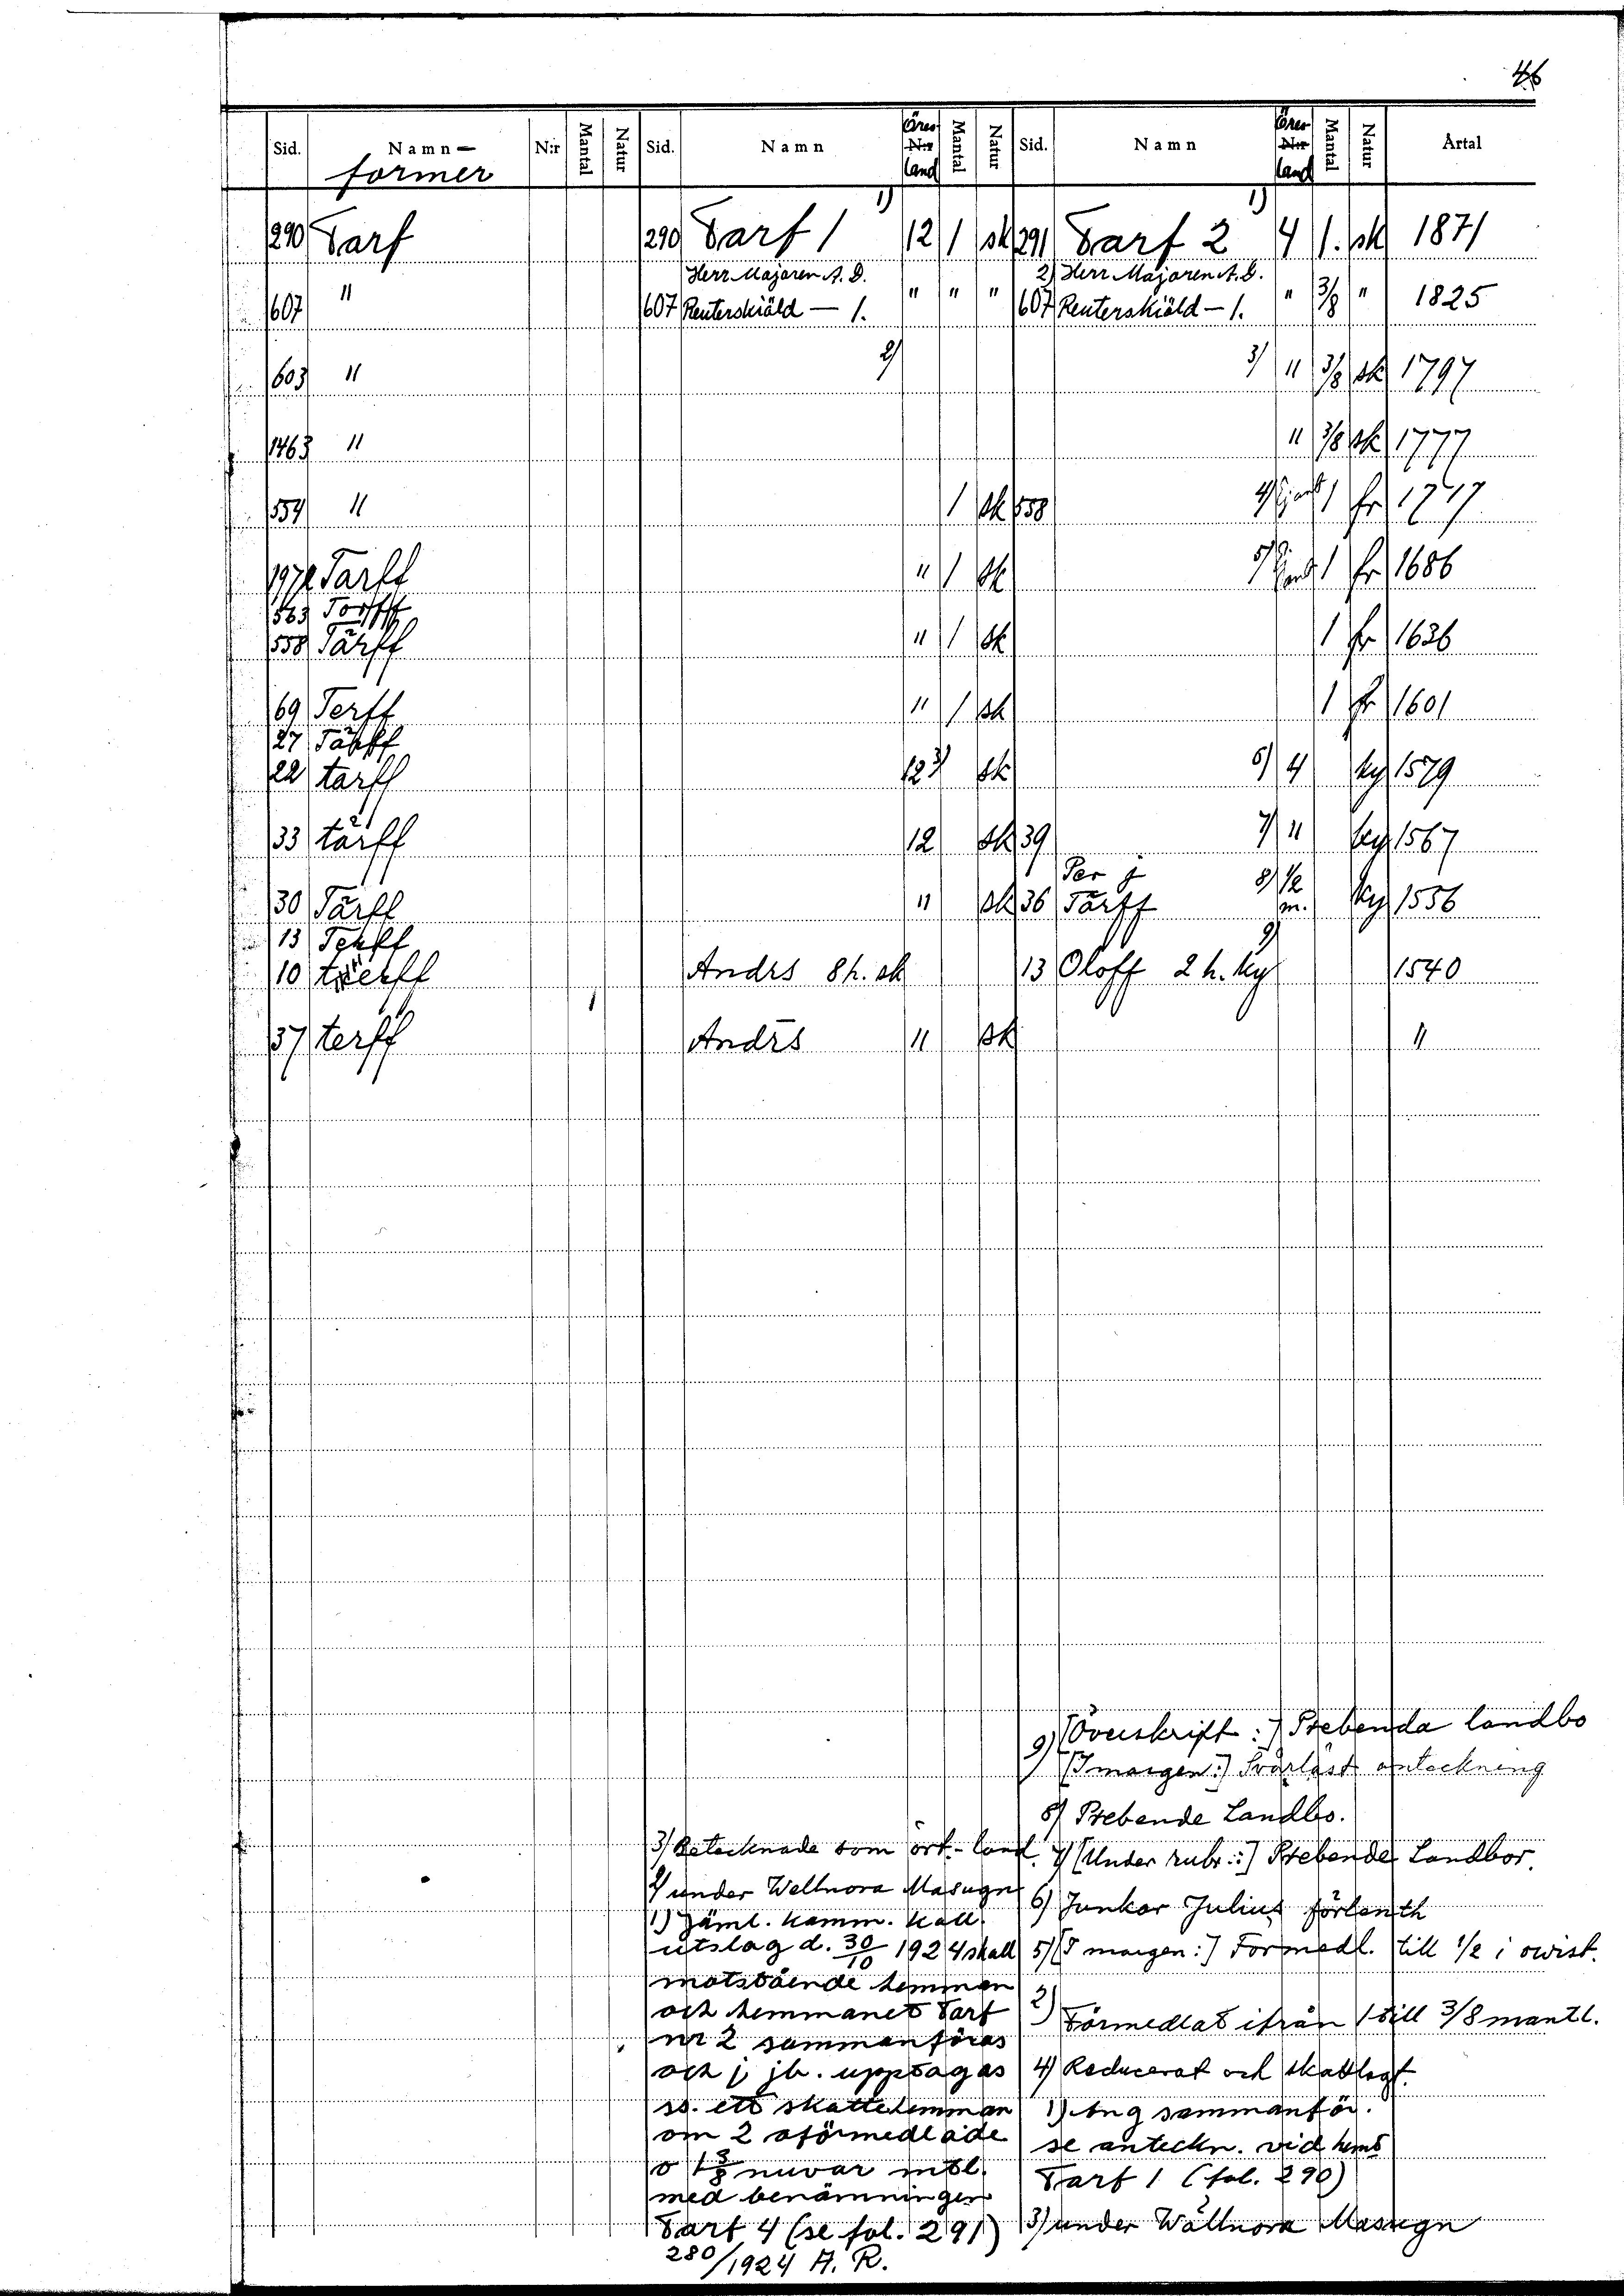 46
Sid. Namn- N:r Mantal Natur Sid. Namn Öres N:r Mantal Natur Sid. Namn Öres N:r Mantal Natur Årtal
former land land
290 Tarf 290 Tarf 1 1) 12 1 sk 291 Tarf 2 1) 4 1. sk 1871
Herr Majoren A. D. 2) Herr Majoren A. D.
607 " 607 Reuterskiäld — 1. " " " 607 Reuterskiöld — 1. " 3/8 " 1825
603 " 2) 3) " 3/8 sk 1797
1463 " " 3/8 sk 1777
554 " 1 sk 558 4) 1 fr 1747
1972 Tarff " 1 sk 5) 1 fr 1686
563 Torfff
558 Tärff " 1 sk 1 fr 1636
69 Terff " 1 sk 1 fr 1601
27 Tärff
22 tarff 12 3) sk 6) 4 ky 1579
33 tärff 12 sk 39 7) " ky 1567
Per j
30 Tärff " sk 36 Tärff 8) 1/2 m. ky 1556
13 Terff 9)
10 tierff Andrs 8 h. sk 13 Oloff 2 h. ky 1540
37 terff Andrs " sk "
9) [Överskrift:] Prebenda landbo
[I margen:] Svårläst anteckning
8) Prebende Landbo.
3) Betecknade som ört.-land. 7) [Under rubr.:] Prebende Landbor.
2) under Wellnora Masugn 6) Junkar Julius förlenth
1) Jäml. Kamm. Koll.
utslag d. 30/10 1924 skall 5) [I margen:] Formedl. till 1/2 i owist.
motstående hemman
och hemmanet Tarf 2) Förmedlat ifrån 1 till 3/8 mantl.
nr 2 sammanföras
och i jb. upptagas 4) Reducerat och skattlagt.
ss. ett skattehemman 1) Ang sammanför.
om 2 oförmedlade se anteckn. vid hemt
o 1 3/8 nuvar mtl. Tarf 1 (fol. 290)
med benämningen
Tarf 4 (se fol. 291) 3) under Wällnora Masugn
280/1924 A. R.